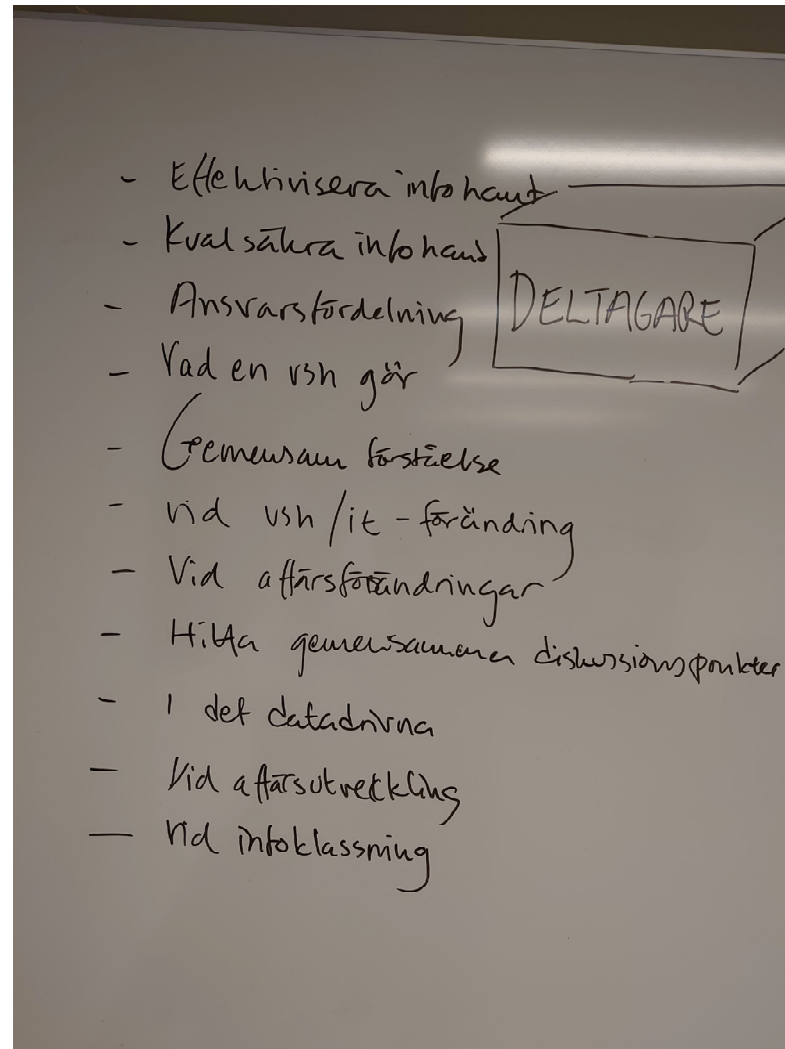 - Effektivisera infohant
- Kvalsäkra infohand
- Ansvarsfördelning
DELTAGARE
- Vad en vsh gör
- Gemensam förståelse
- vid vsh/it-förändring
- Vid affärsförändringar
- Hitta gemensamma diskussionspunkter
- I det datadrivna
- Vid affärsutveckling
- Vid infoklassning